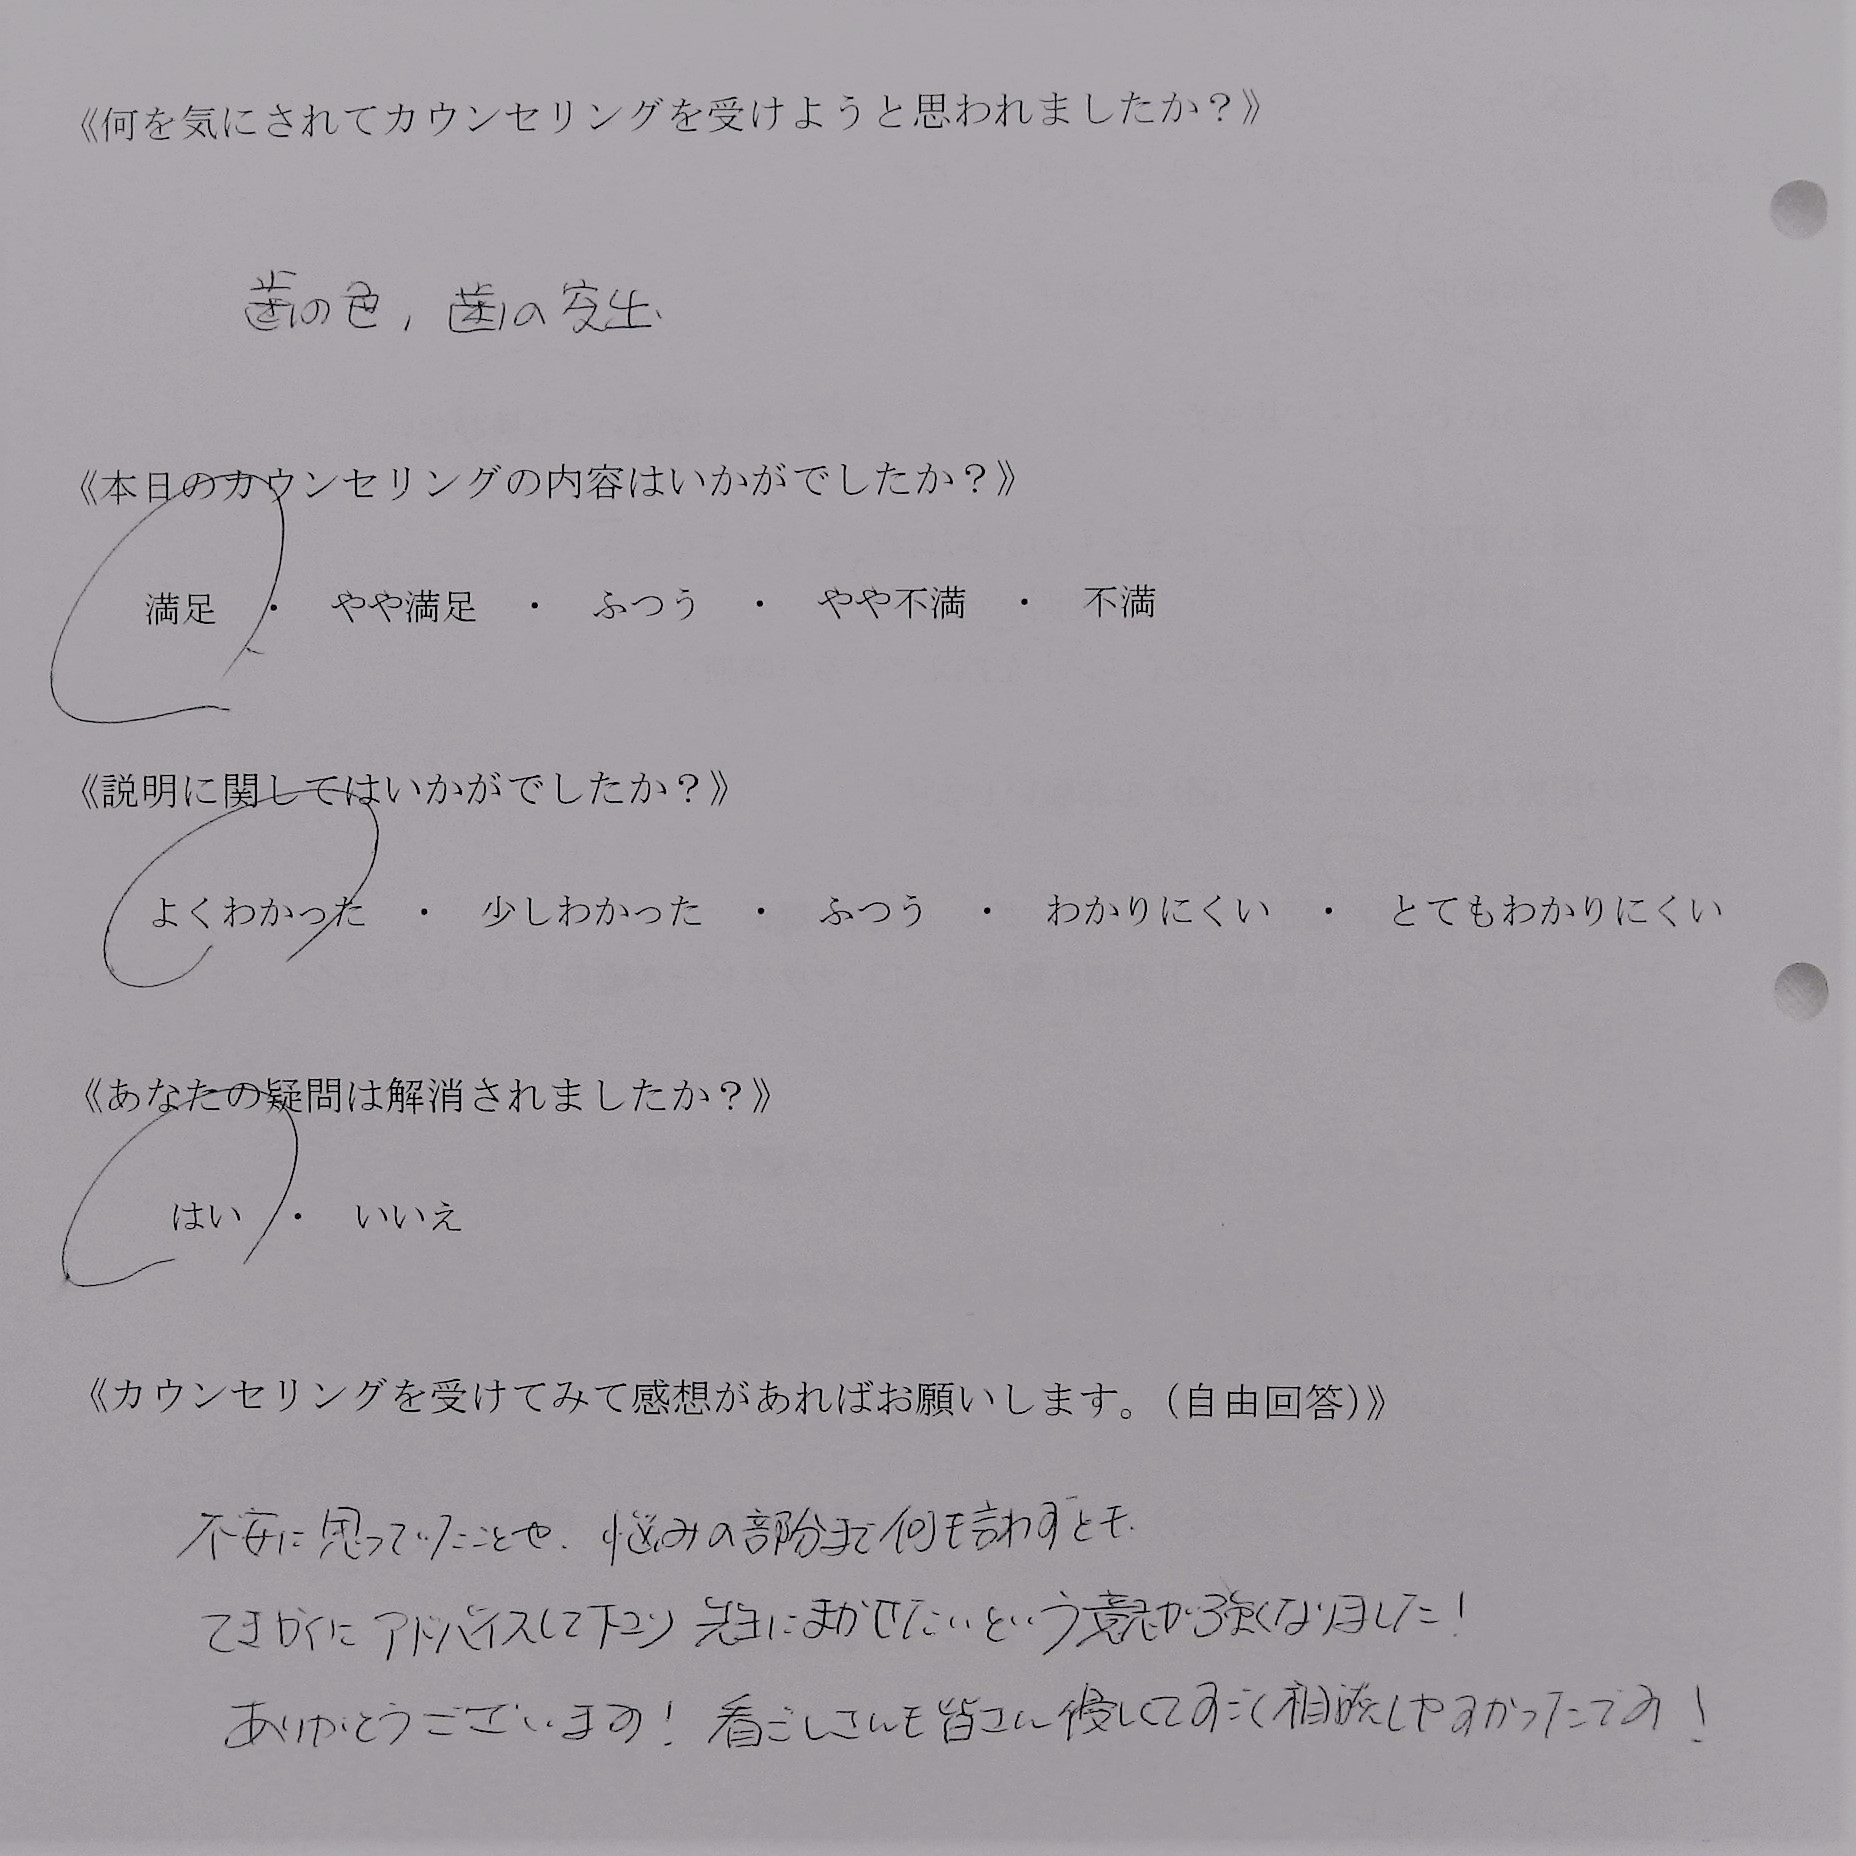 《何を気にされてカウンセリングを受けようと思われましたか？》
歯の色, 歯の突出.
《本日のカウンセリングの内容はいかがでしたか？》
満足 ・ やや満足 ・ ふつう ・ やや不満 ・ 不満
《説明に関してはいかがでしたか？》
よくわかった ・ 少しわかった ・ ふつう ・ わかりにくい ・ とてもわかりにくい
《あなたの疑問は解消されましたか？》
はい ・ いいえ
《カウンセリングを受けてみて感想があればお願いします。（自由回答）》
不安に思っていたことや、悩みの部分まで何も言わずとも、
てきかくにアドバイスして下さり 先生にまかせたいという意志が強くなりました！
ありがとうございます！ 看ごしさんも皆さん優しくてすごく相談しやすかったです！